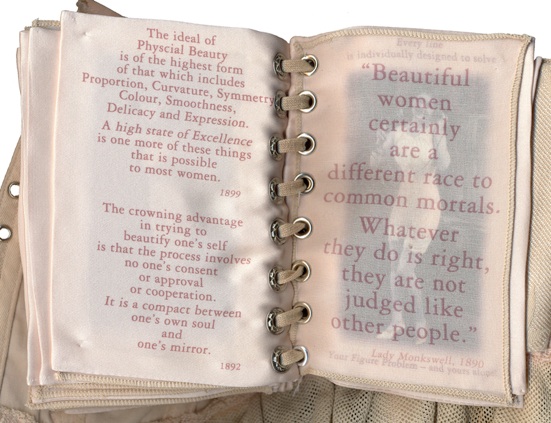 The ideal of
Physcial Beauty
is of the highest form
of that which includes
Proportion, Curvature, Symmetry
Colour, Smoothness,
Delicacy and Expression.
A high state of Excellence
is one more of these things
that is possible
to most women.
1899
The crowning advantage
in trying to
beautify one's self
is that the process involves
no one's consent
or approval
or cooperation.
It is a compact between
one's own soul
and
one's mirror.
1892
Every line
is individually designed to solve
“Beautiful
women
certainly
are a
different race to
common mortals.
Whatever
they do is right,
they are not
judged like
other people.”
Lady Monkswell, 1890
Your Figure Problem – and yours alone!